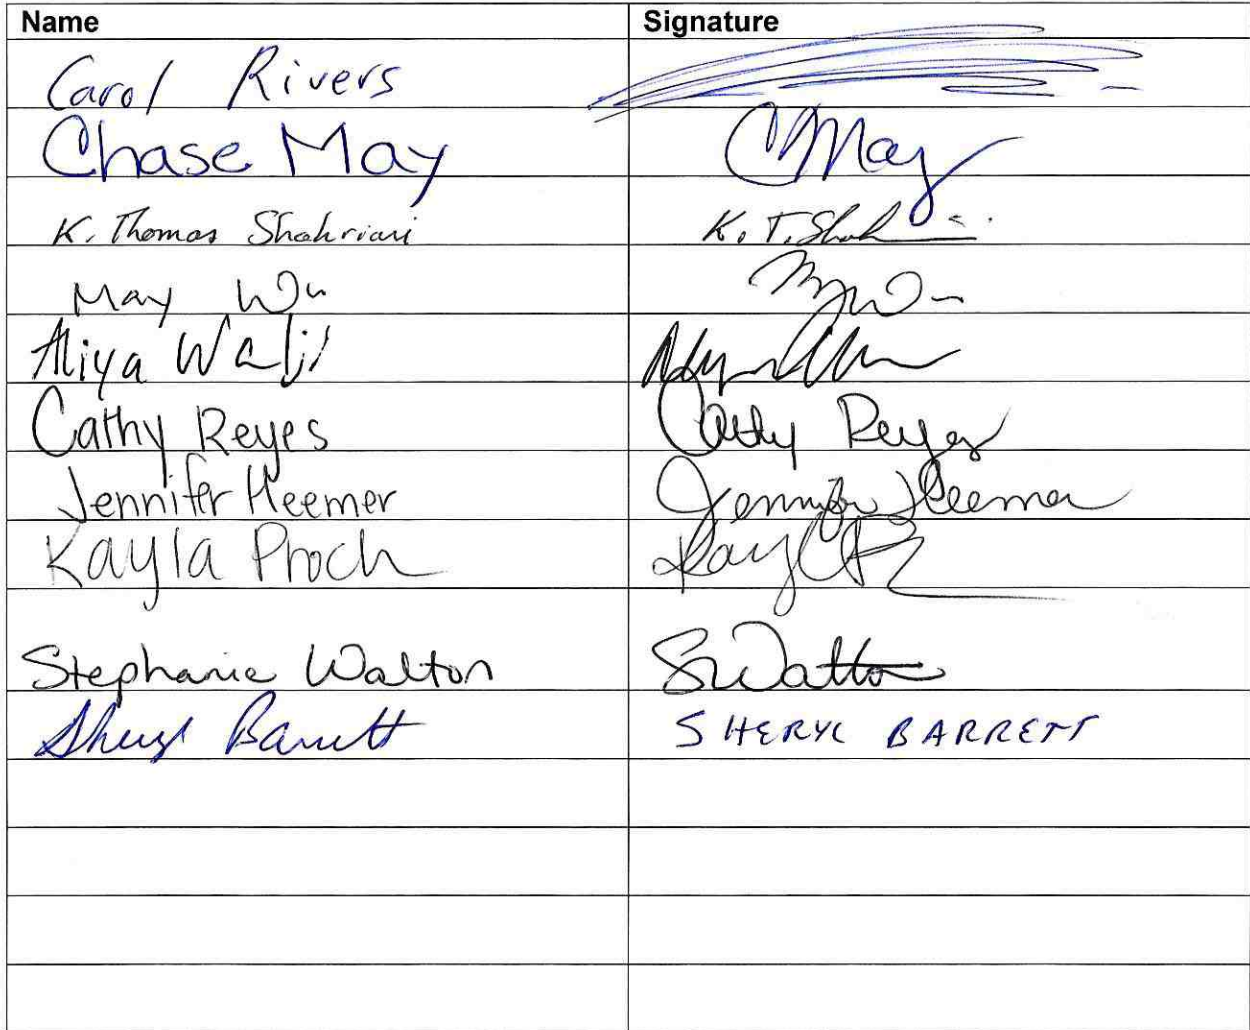 Name Signature
Carol Rivers
Chase May CMay
K. Thomas Shahriari K. T. Shah
May Wu
Aliya Walji
Cathy Reyes Cathy Reyes
Jennifer Heemer Jennifer Heemer
Kayla Proch
Stephanie Walton SWalton
Sheryl Barrett SHERYL BARRETT